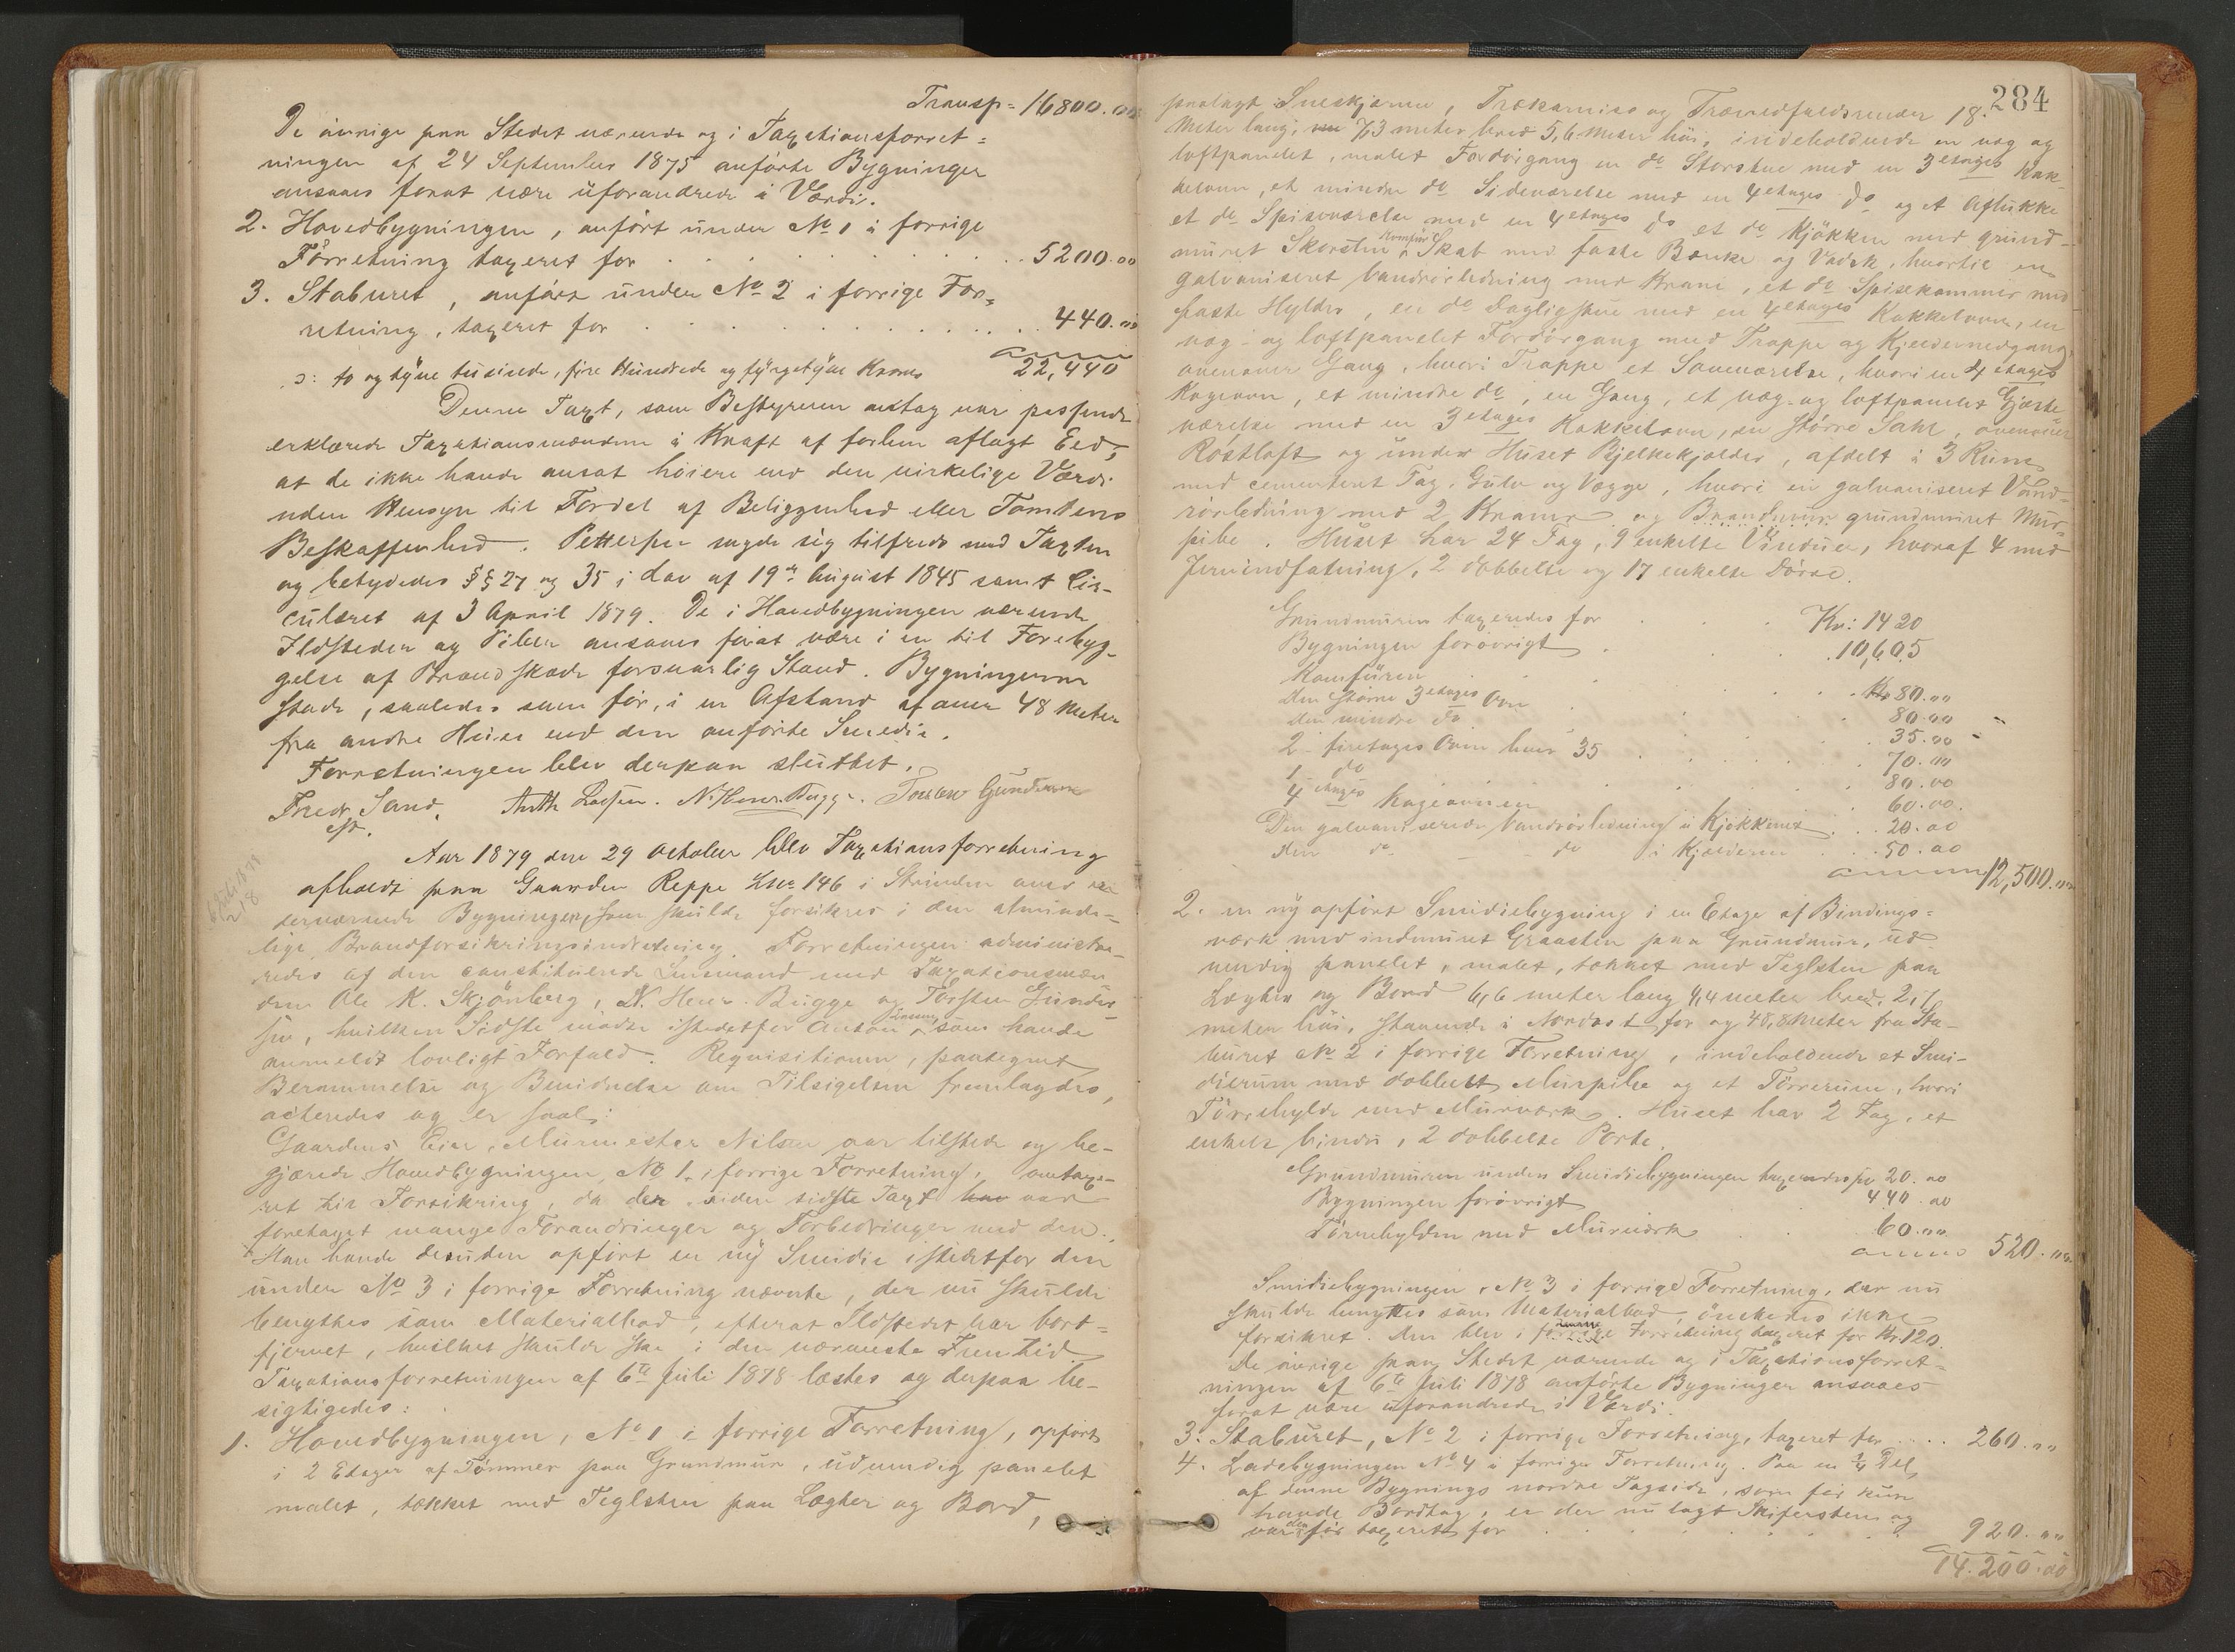 Transp = 16800.00
De øvrige paa Stedet værende og i Taxationsforret=
ningen af 24 September 1875 anførte Bygninger
ansaaes forat være uforandrede i Værdi.
2. Hovedbygningen, anført under No 1 i forrige
Forretning taxeret for . . . . 5200.00
3. Staburet, anført under No 2 i forrige For=
retning, taxeret for . . . . 440.00
22,440
ɔ: to og tyve tusinde, fire Hundrede og fyrgetyve Kroner
Denne Taxt, som Bestyreren antog var passende
erklærede Taxationsmændene i Kraft af forhen aflagt Eed,
at de ikke havde ansat høiere end den virkelige Værdi
uden Hensyn til Fordel af Beliggenhed eller Tomtens
Beskaffenhed. Pettersen sagde sig tilfreds med Taxten
og betydedes §§ 27 og 35 i Lov af 19de August 1845 samt Cir-
culæret af 3 April 1879. De i Hovedbygningen værende
Ildsteder og Piber ansaaes forat være i en til Forebyg-
gelse af Brandskade forsvarlig Stand. Bygningerne
stode, saaledes som før, i en Afstand af over 48 Meter
fra andre Huse end den anførte Smedie.
Forretningen blev derpaa sluttet.
Fredr. Sand. Anth Larsen. N. Henr. Bugge. Torsten Gundersen
cst.
Aar 1879 den 29 October blev Taxationsforretning
afholdt paa Gaarden Reppe Lno 146 i Strinden over
derværende Bygninger, som skulde forsikres i den alminde-
lige Brandforsikringsindretning. Forretningen administre-
redes af den constituerede Lensmand med Taxationsmæn
dene Ole K. Skjønberg, N. Henr. Bugge og Torsten Gunder
sen, hvilken Sidste mødte istedetfor Anton Larsen, som havde
anmeldt lovligt Forfald. Requisitionen, paategnet
Berammelse og Bevidnelse om Tilsigelsen fremlagdes,
acteredes og er saal:
Gaardens Eier, Murmester Nilsen var tilstede og be-
gjærede Hovedbygningen, No 1 i forrige Forretning, omtaxe-
ret til Forsikring, da der siden sidste Taxt har var
foretaget mange Forandringer og Forbedringer med den.
Han havde desuden opført en ny Smedie istedetfor den
under No 3 i forrige Forretning nævnte, der nu skulde
benyttes som Materialbod, efterat Ildstedet var bort=
fjernet, hvilket skulde ske i den nærmeste Fremtid.
Taxationsforretningen af 6te Juli 1878 læstes og derpaa be-
sigtigedes:
1. Hovedbygningen, No 1 i forrige Forretning, opført
i 2 Etager af Tømmer paa Grundmur, udvendig panelet
malet, tækket med Teglsten paa Lægter og Bord,
284
paalagt Sneskjærme, Trækarniss og Trænedfaldsrender 18.
Meter lang, 7,3 meter bred 5,6 Meter høi, indeholdende en væg og
loftpanelet, malet Fordørgang en do Storstue med en 3 etages Kak-
kelovn, et mindre do Sideværelse med en 4 etages do og et Aflukke
et do Spiseværelse med en 4 etages do et do Kjøkken med grund-
muret Skorsten, Komfür, Skab med faste Bænke og Vadsk, hvortil en
galvaniseret Vandrørledning med Krane, et do Spisekammer med
faste Hylder, en do Dagligstue med en 4 etages Kakkelovn, en
væg- og loftpanelet Fordørgang med Trappe og Kjeldernedgang
ovenover Gang, hvori Trappe et Soveværelse, hvori en 4 etages
Kogeovn, et mindre do, en Gang, et væg- og loftpanelet Gjæste
værelse med en 3 etages Kakkelovn, en større Sahl, ovenover
Røstloft og under Huset Bjelkekjelder, afdelt i 3 Rum
med cementeret Tag, Gulv og Vægge, hvori en galvaniseret Vand-
rørledning med 2 Kraner og Brandmur grundmuret Mur-
pibe. Huset har 24 Fag, 9 enkelte Vinduer, hvoraf 4 med
Jernindfatning, 2 dobbelte og 17 enkelte Dørre.
Grundmuren taxeredes for . . . Kr: 1420
Bygningen forøvrigt . . . 10,605
Komfüren . . . Kr 80.00
den større 3 etages Ovn . . . 80.00
den mindre do . . . 35.00
2 firetages Ovne hver 35 . . . 70.00
1 do . . . 80.00
4 etages Kogeovnen . . . 60.00
Den galvaniserede Vandrørledning i Kjøkkenet . . 20.00
den do do i Kjelderen . . 50.00
12,500.00
2. en ny opført Smediebygning i en Etage af Bindings=
værk med indmuret Graasten paa Grundmur, ud
vendig panelet, malet, tækket med Teglsten paa
Lægter og Bord 6,6 meter lang 4,4 meter bred, 2,8
meter høi, staaende i Nordost for og 48,8 Meter fra Sta-
buret No 2 i forrige Forretning, indeholdende et Sme-
dierum med dobbelt Murpibe og et Tørrerum, hvori
Tørrehylde med Murværk. Huset har 2 Fag, et
enkelt Vindu, 2 dobbelte Porte.
Grundmuren under Smediebygningen taxeredes for 20.00
Bygningen forøvrigt 440.00
Tørrehylden med Murværk . . 60.00
520.00
Smediebygningen, No 3 i forrige Forretning, der nu
skulde benyttes som Materialbod, ønskedes ikke
forsikret. Den blev i forrige Forretning taxeret for Kr 120.
De øvrige paa Stedet værende og i Taxationsforret-
ningen af 6te Juli 1878 anførte Bygninger ansaaes
forat være uforandrede i Værdi.
3. Staburet, No 2 i forrige Forretning, taxeret for . . . . 260.00
4. Ladebygningen No 4 i forrige Forretning. Paa en 1/4 Del
af denne Bygnings nordre Tagside, som før kun
havde Bordtag, er der nu lagt Skifersten og
var den før taxeret for . . . . 920.00
14.200.00